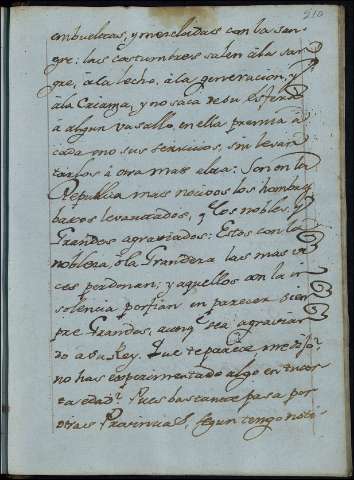 210
embueltas, y mezcladas con la san-
gre: las costumbres salen â la san
gre, â la leche, â la generacion, y
â la Crianza, y no saca de su esfera
â algun vasallo, en ella premia â
cada uno sus servicios, sin levan
tarlos â otra mas alta: Son en la
Republica mas nocivos los hombres
bajos levantados, q̃ los nobles, y
Grandes agraviados: Estos con la
nobleza, ô la Grandeza las mas ve
ces perdonan; y aquellos con la in
solencia porfian en parecer siem
pre Grandes, aunq̃ sea agravian
do a su Rey. Que te parece me dijo?
no has experimentado algo en tu cor
ta edad? Pues bastante pasa por
otras Provincias, segun tengo noti-